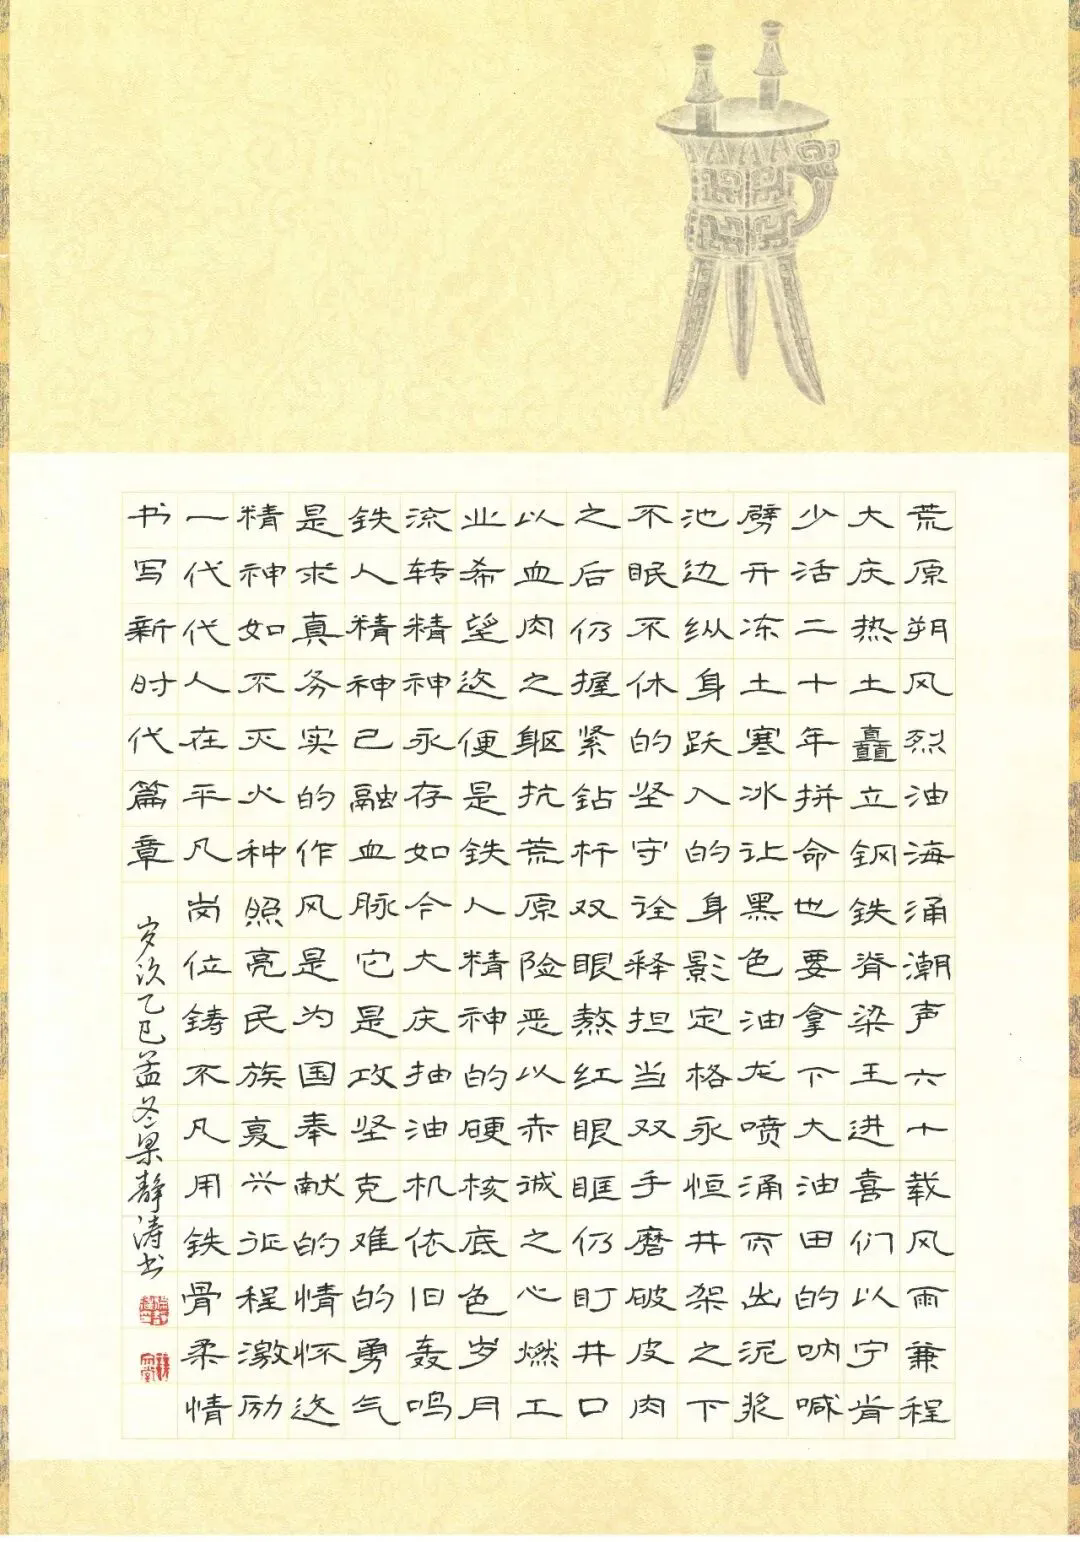 荒原朔风烈油海涌潮声六十载风雨兼程
大庆热土矗立钢铁脊梁王进喜们以宁肯
少活二十年拼命也要拿下大油田的呐喊
劈开冻土寒冰让黑色油龙喷涌而出泥浆
池边纵身跃入的身影定格永恒井架之下
不眠不休的坚守诠释担当双手磨破皮肉
之后仍握紧钻杆双眼熬红眼眶仍盯井口
以血肉之躯抗荒原险恶以赤诚之心燃工
业希望这便是铁人精神的硬核底色岁月
流转精神永存如今大庆抽油机依旧轰鸣
铁人精神已融血脉它是攻坚克难的勇气
是求真务实的作风是为国奉献的情怀这
精神如不灭火种照亮民族复兴征程激励
一代代人在平凡岗位铸不凡用铁骨柔情
书写新时代篇章
岁次乙巳孟冬梁静涛书